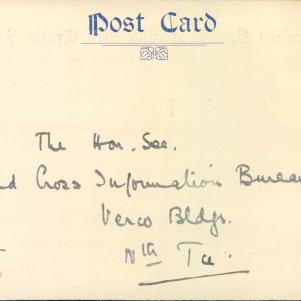 Post Card
The Hon. Sec.
Cross Information Bureau
Verco Bldgs.
Nth Tce.